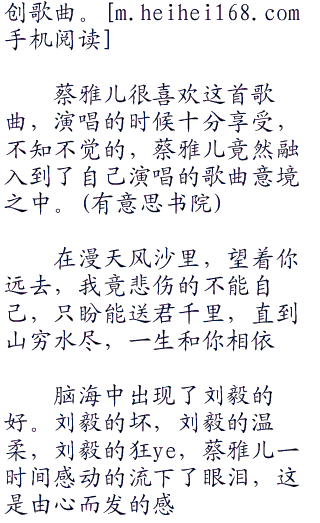 创歌曲。[m.heihei168.com
手机阅读]
蔡雅儿很喜欢这首歌
曲，演唱的时候十分享受，
不知不觉的，蔡雅儿竟然融
入到了自己演唱的歌曲意境
之中。(有意思书院)
在漫天风沙里，望着你
远去，我竟悲伤的不能自
己，只盼能送君千里，直到
山穷水尽，一生和你相依
脑海中出现了刘毅的
好。刘毅的坏，刘毅的温
柔，刘毅的狂ye，蔡雅儿一
时间感动的流下了眼泪，这
是由心而发的感